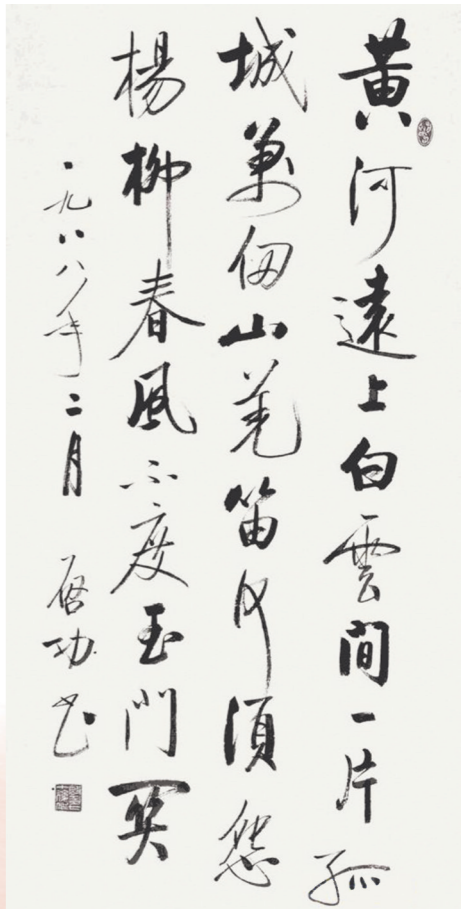 黄河遠上白雲間一片孤
城萬仞山羌笛何須怨
楊柳春風不度玉門關
一九八八年二月 啓功书